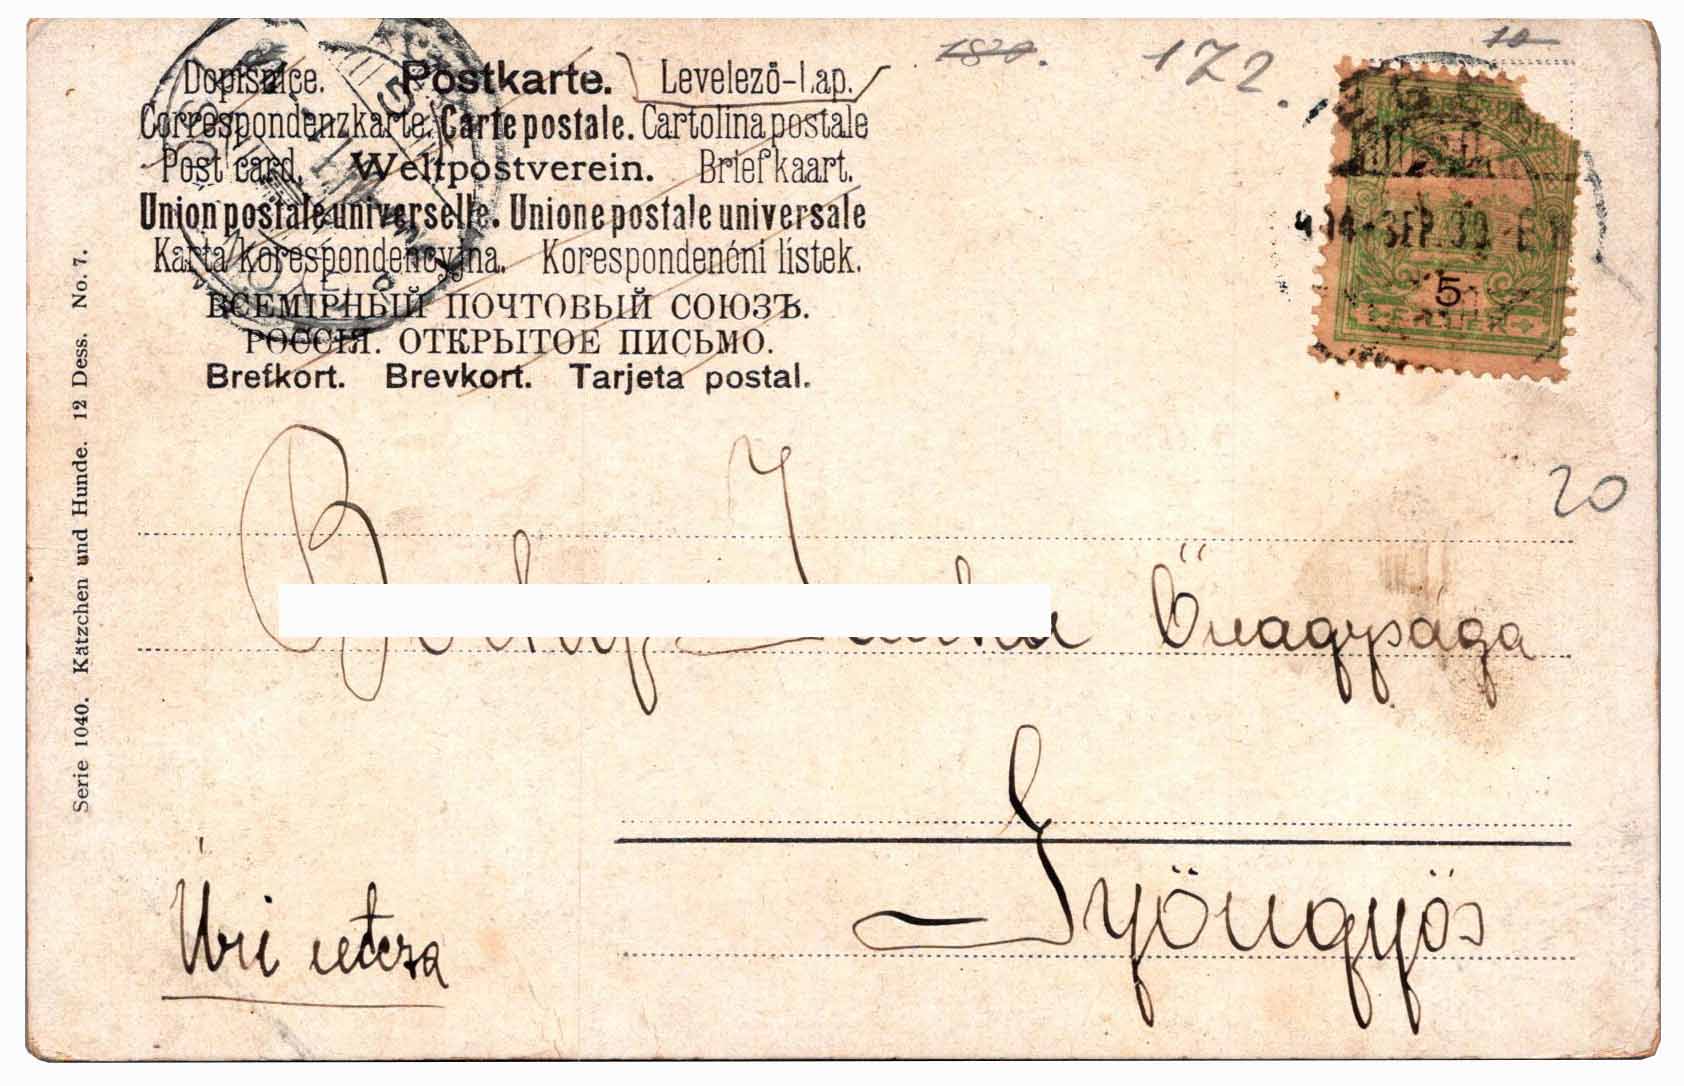 Dopisnice. Postkarte. Levelező-Lap.
Correspondenzkarte. Carte postale. Cartolina postale
Post card. Weltpostverein. Briefkaart.
Union postale universelle. Unione postale universale
Karta korespondencyjna. Korespondenčni listek.
ВСЕМІРНЫЙ ПОЧТОВЫЙ СОЮЗЪ.
РОССІЯ. ОТКРЫТОЕ ПИСЬМО.
Brefkort. Brevkort. Tarjeta postal.
172.
10
SEP. 30
5
FILLER
20
Őnagysága
Gyöngyös
Úri utcza
Serie 1040. Kätzchen und Hunde. 12 Dess. No. 7.